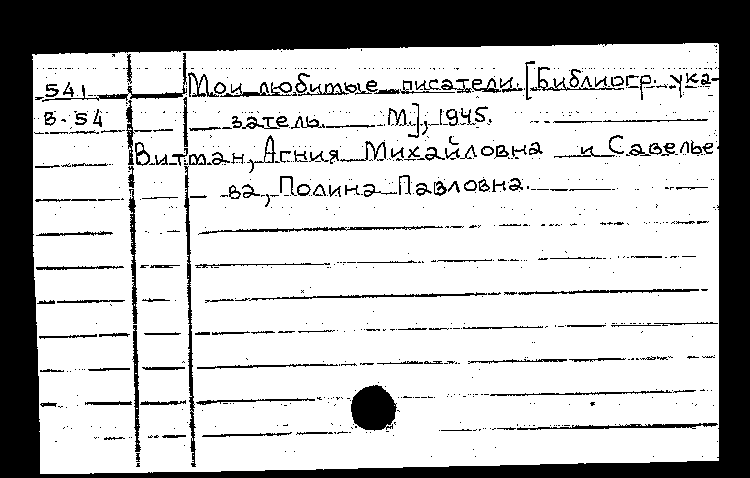 541 Мои любимые писатели. [Библиогр. ука-
В-54 затель. М.], 1945.
Витман, Агния Михайловна и Савелье-
ва, Полина Павловна.